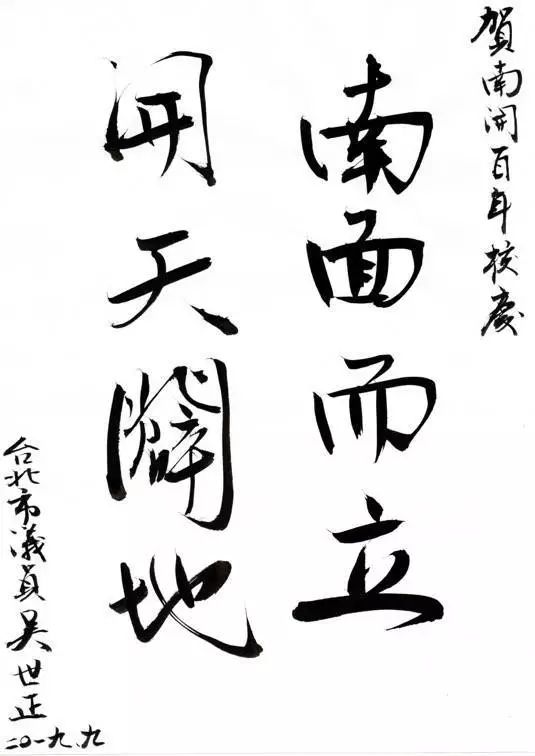 賀南開百年校慶
南面而立
開天闢地
台北市議員吳世正
二〇一九、九